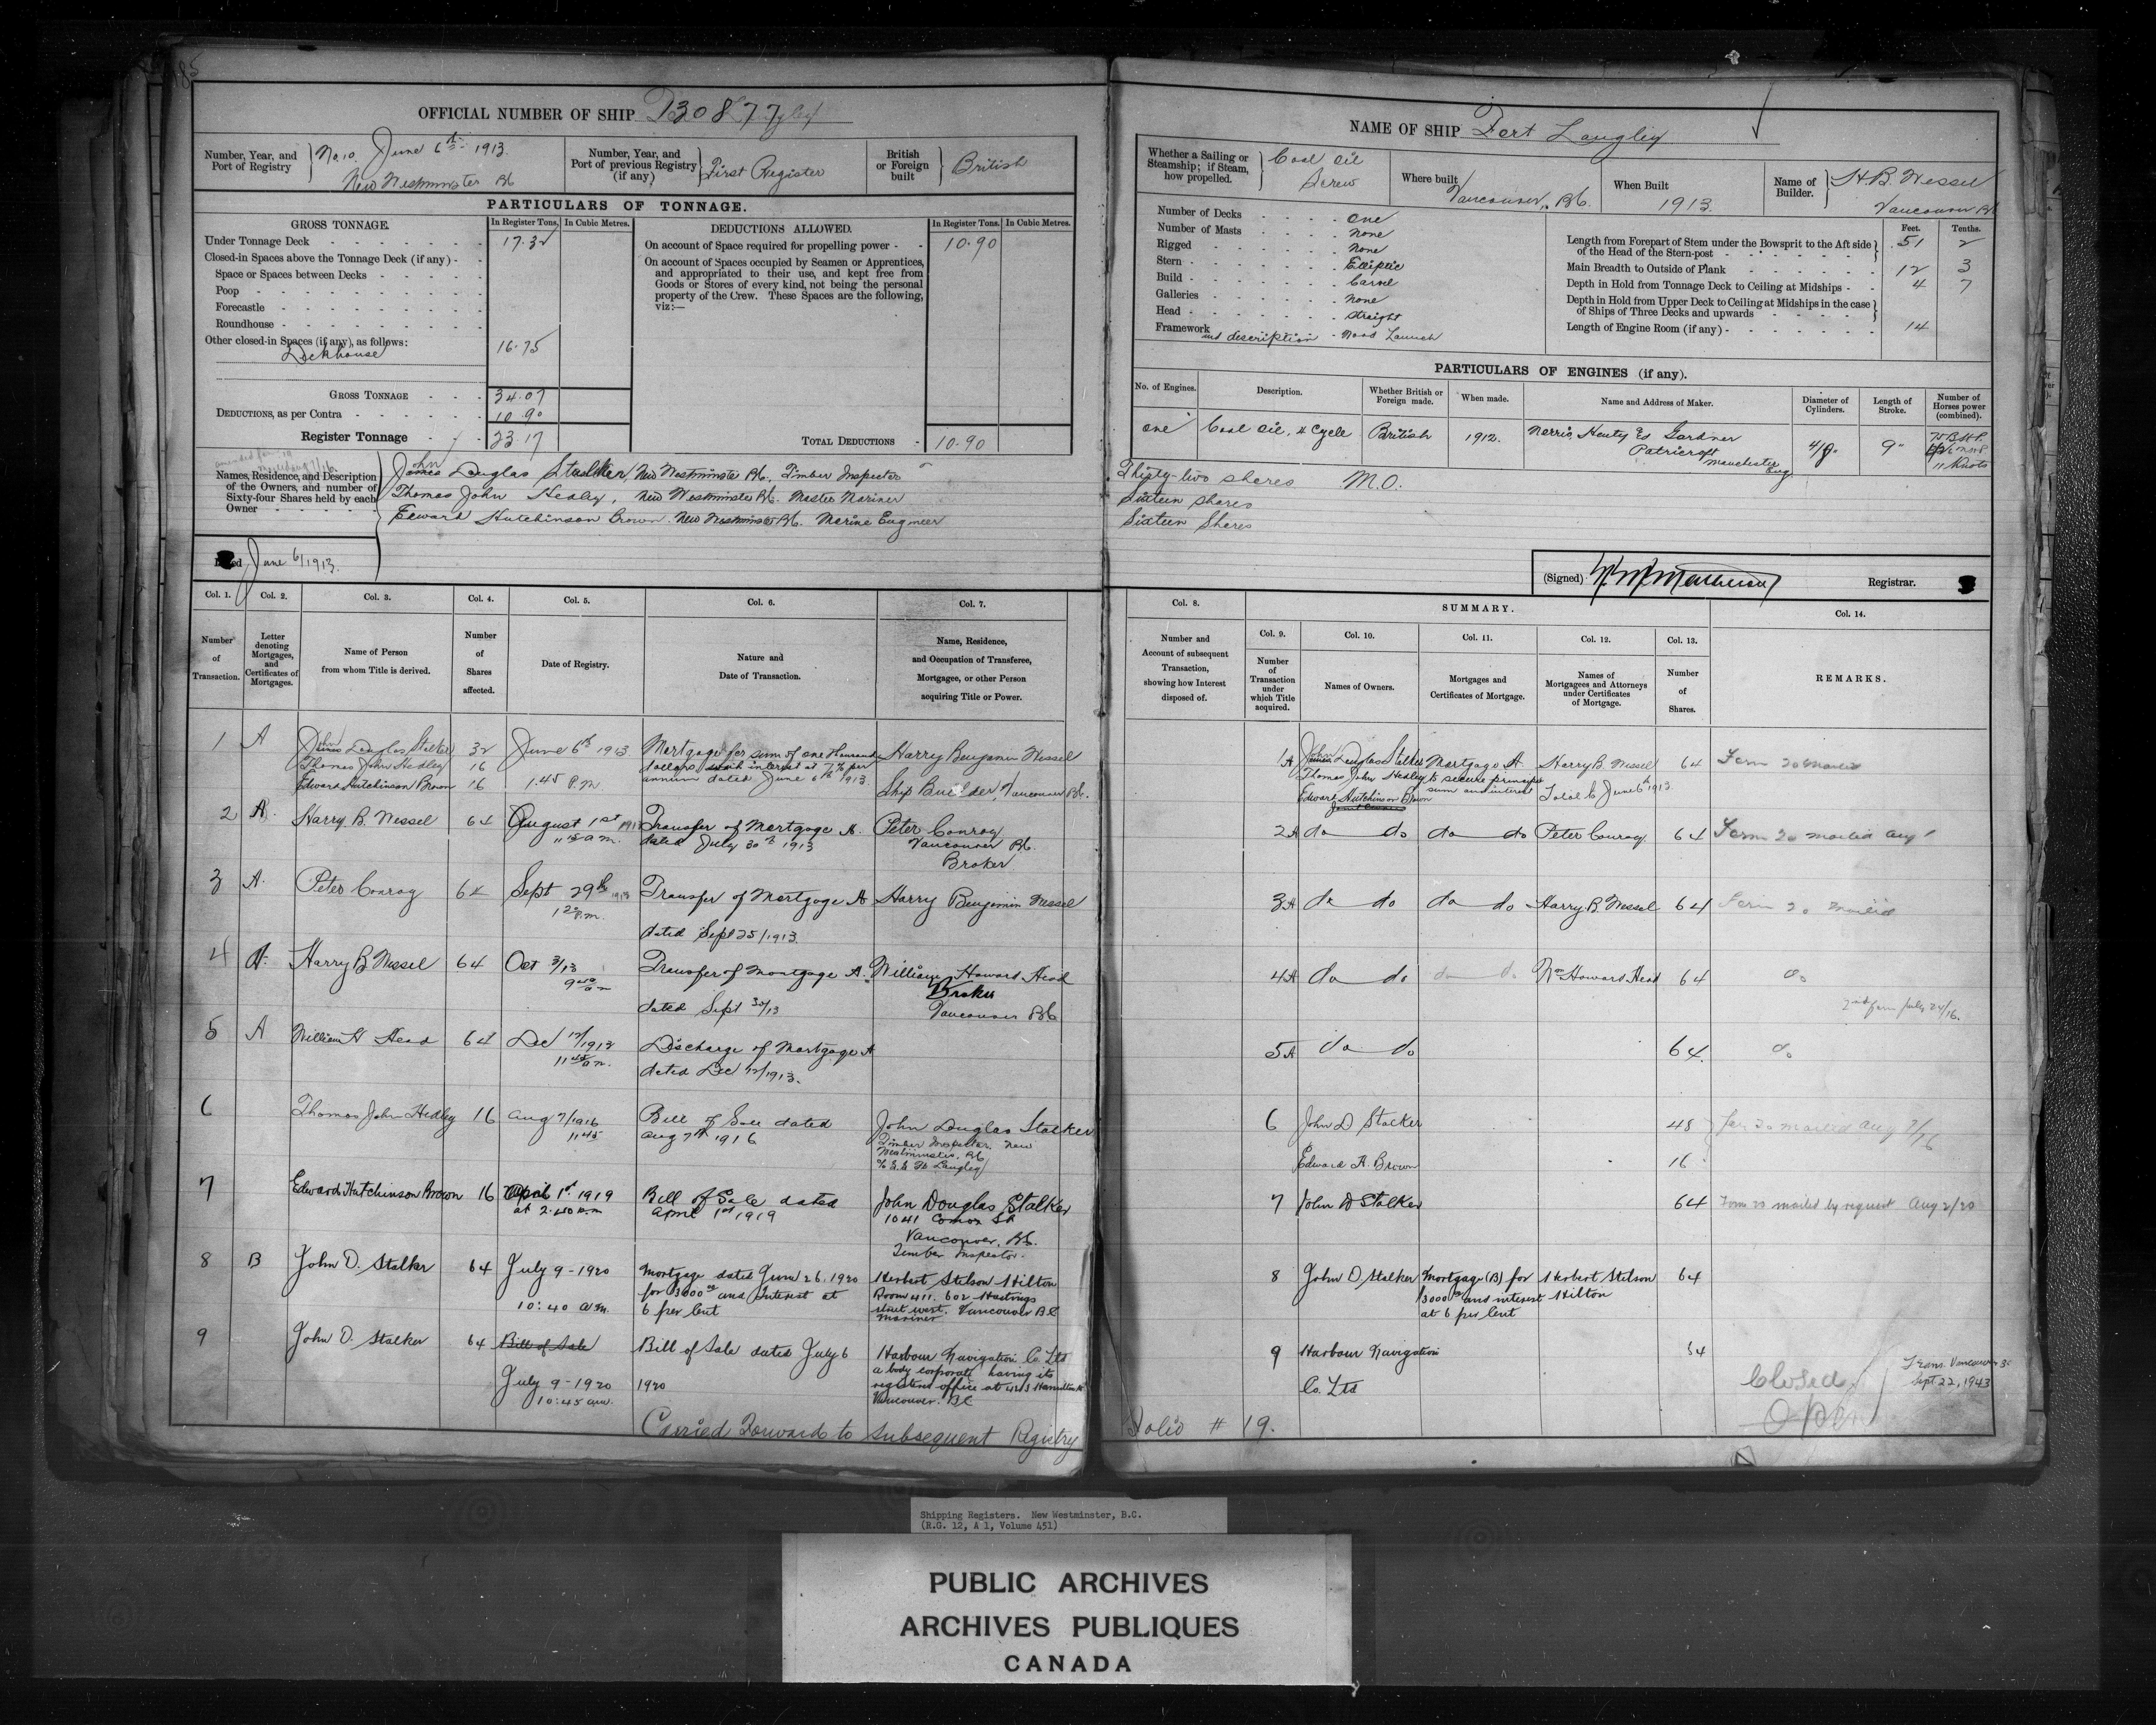 185
OFFICIAL NUMBER OF SHIP 130877
Number, Year, and Port of Registry No. 10. June 6th 1913 New Westminster BC
Number, Year, and Port of previous Registry (if any) First Register
British or Foreign built British
PARTICULARS OF TONNAGE.
GROSS TONNAGE. In Register Tons. In Cubic Metres.
Under Tonnage Deck 17.32
Closed-in Spaces above the Tonnage Deck (if any)
Space or Spaces between Decks
Poop
Forecastle
Roundhouse
Other closed-in Spaces (if any), as follows:
Deckhouse 16.75
GROSS TONNAGE 34.07
DEDUCTIONS, as per Contra 10.90
Register Tonnage 23.17
DEDUCTIONS ALLOWED. In Register Tons. In Cubic Metres.
On account of Space required for propelling power 10.90
On account of Spaces occupied by Seamen or Apprentices, and appropriated to their use, and kept free from Goods or Stores of every kind, not being the personal property of the Crew. These Spaces are the following, viz:—
TOTAL DEDUCTIONS 10.90
Names, Residence, and Description of the Owners, and number of Sixty-four Shares held by each Owner
John
James Douglas Stalker, New Westminster BC, Timber Inspector
Thomas John Hedley, New Westminster BC. Master Mariner
Edward Hutchinson Brown. New Westminster BC. Marine Engineer
Dated June 6/1913.
Col. 1. Col. 2. Col. 3. Col. 4. Col. 5. Col. 6. Col. 7.
Number of Transaction.
Letter denoting Mortgages, and Certificates of Mortgages.
Name of Person from whom Title is derived.
Number of Shares affected.
Date of Registry.
Nature and Date of Transaction.
Name, Residence, and Occupation of Transferee, Mortgagee, or other Person acquiring Title or Power.
1 A John James Douglas Stalker 32 June 6th 1913 Mortgage for sum of one thousand Harry Benjamin Wessel
Thomas John Hedley 16 dollars with interest at 7% per
Edward Hutchinson Brown 16 1.45 P.m. annum dated June 6th 1913 Ship Builder, Vancouver BC.
2 A. Harry B. Wessel 64 August 1st 1913 Transfer of Mortgage A. Peter Conroy
a.m. dated July 30th 1913 Vancouver BC.
Broker
3 A. Peter Conroy 64 Sept 29th 1913 Transfer of Mortgage A Harry Benjamin Wessel
P.m. dated Sept 25/1913.
4 A. Harry B Wessel 64 Oct 3/13 Transfer of Mortgage A. William Howard Head
am dated Sept 30/13 Broker
Vancouver BC
5 A William H Head 64 Dec 12/1913 Discharge of Mortgage A
11.45 a.m. dated Dec 12/1913.
6 Thomas John Hedley 16 Aug 7/1916 Bill of Sale dated John Douglas Stalker
11.45 Aug 7th 1916 Timber Inspector, New
Westminster, BC
c/o S.S. Ft Langley
7 Edward Hutchinson Brown 16 April 1st. 1919 Bill of Sale dated John Douglas Stalker
at 2.40 p.m April 1st 1919 1041 Comox St
Vancouver, BC.
Timber Inspector.
8 B John D. Stalker 64 July 9 - 1920 Mortgage dated June 26. 1920 Herbert Stelson Hilton
for 3000 00 and Interest at Room 411. 602 Hastings
10:40 a.m. 6 per Cent street west. Vancouver BC
mariner
9 John D. Stalker 64 Bill of Sale Bill of Sale dated July 6 Harbour Navigation Co. Ltd
a body corporate having its
July 9 - 1920 1920 registered office at
10:45 am. Vancouver. BC
Carried Forward to Subsequent Registry
NAME OF SHIP Fort Langley
Whether a Sailing or Steamship; if Steam, how propelled. Coal Oil Screw
Where built Vancouver, BC.
When Built 1913.
Name of Builder. H.B. Wessel Vancouver BC
Number of Decks One
Number of Masts None
Rigged None
Stern Elliptic
Build Carvel
Galleries None
Head Straight
Framework and description Wood Launch
Feet. Tenths.
Length from Forepart of Stem under the Bowsprit to the Aft side of the Head of the Stern-post 51 2
Main Breadth to Outside of Plank 12 3
Depth in Hold from Tonnage Deck to Ceiling at Midships 4 7
Depth in Hold from Upper Deck to Ceiling at Midships in the case of Ships of Three Decks and upwards
Length of Engine Room (if any) 14
PARTICULARS OF ENGINES (if any).
No. of Engines. Description. Whether British or Foreign made. When made. Name and Address of Maker. Diameter of Cylinders. Length of Stroke. Number of Horses power (combined).
One Coal Oil, 4 Cycle British 1912. Norris, Henty & Gardner 9"
Patricroft Manchester Eng 11 Knots
Thirty-two shares M.O.
Sixteen shares
Sixteen Shares
(Signed) Registrar.
SUMMARY.
Col. 8. Col. 9. Col. 10. Col. 11. Col. 12. Col. 13. Col. 14.
Number and Account of subsequent Transaction, showing how Interest disposed of.
Number of Transaction under which Title acquired.
Names of Owners.
Mortgages and Certificates of Mortgage.
Names of Mortgagees and Attorneys under Certificates of Mortgage.
Number of Shares.
REMARKS.
1A John James Douglas Stalker Mortgage A Harry B. Wessel 64 Form 20 mailed
Thomas John Hedley to secure principal
Edward Hutchinson Brown sum and interest Total to June 6th 1913.
2A do do do do Peter Conroy 64 Form 20 mailed Aug 1
3A do do do do Harry B Wessel 64 Form 20 mailed
4A do do do do Wm Howard Head 64 do
2nd form July 24/16.
5A do do 64. do
6 John D Stalker 48 For 20 mailed Aug 7/16
Edward H. Brown 16
7 John D Stalker 64 Form 20 mailed by request Aug 2/20
8 John D Stalker Mortgage (B) for Herbert Stelson 64
3000 00 and interest Hilton
at 6 per Cent
9 Harbour Navigation 64
Co. Ltd
Closed
Trans. Vancouver BC
Sept 22, 1943
Open
Folio # 19.
Shipping Registers. New Westminster, B.C.
(R.G. 12, A 1, Volume 451)
PUBLIC ARCHIVES
ARCHIVES PUBLIQUES
CANADA